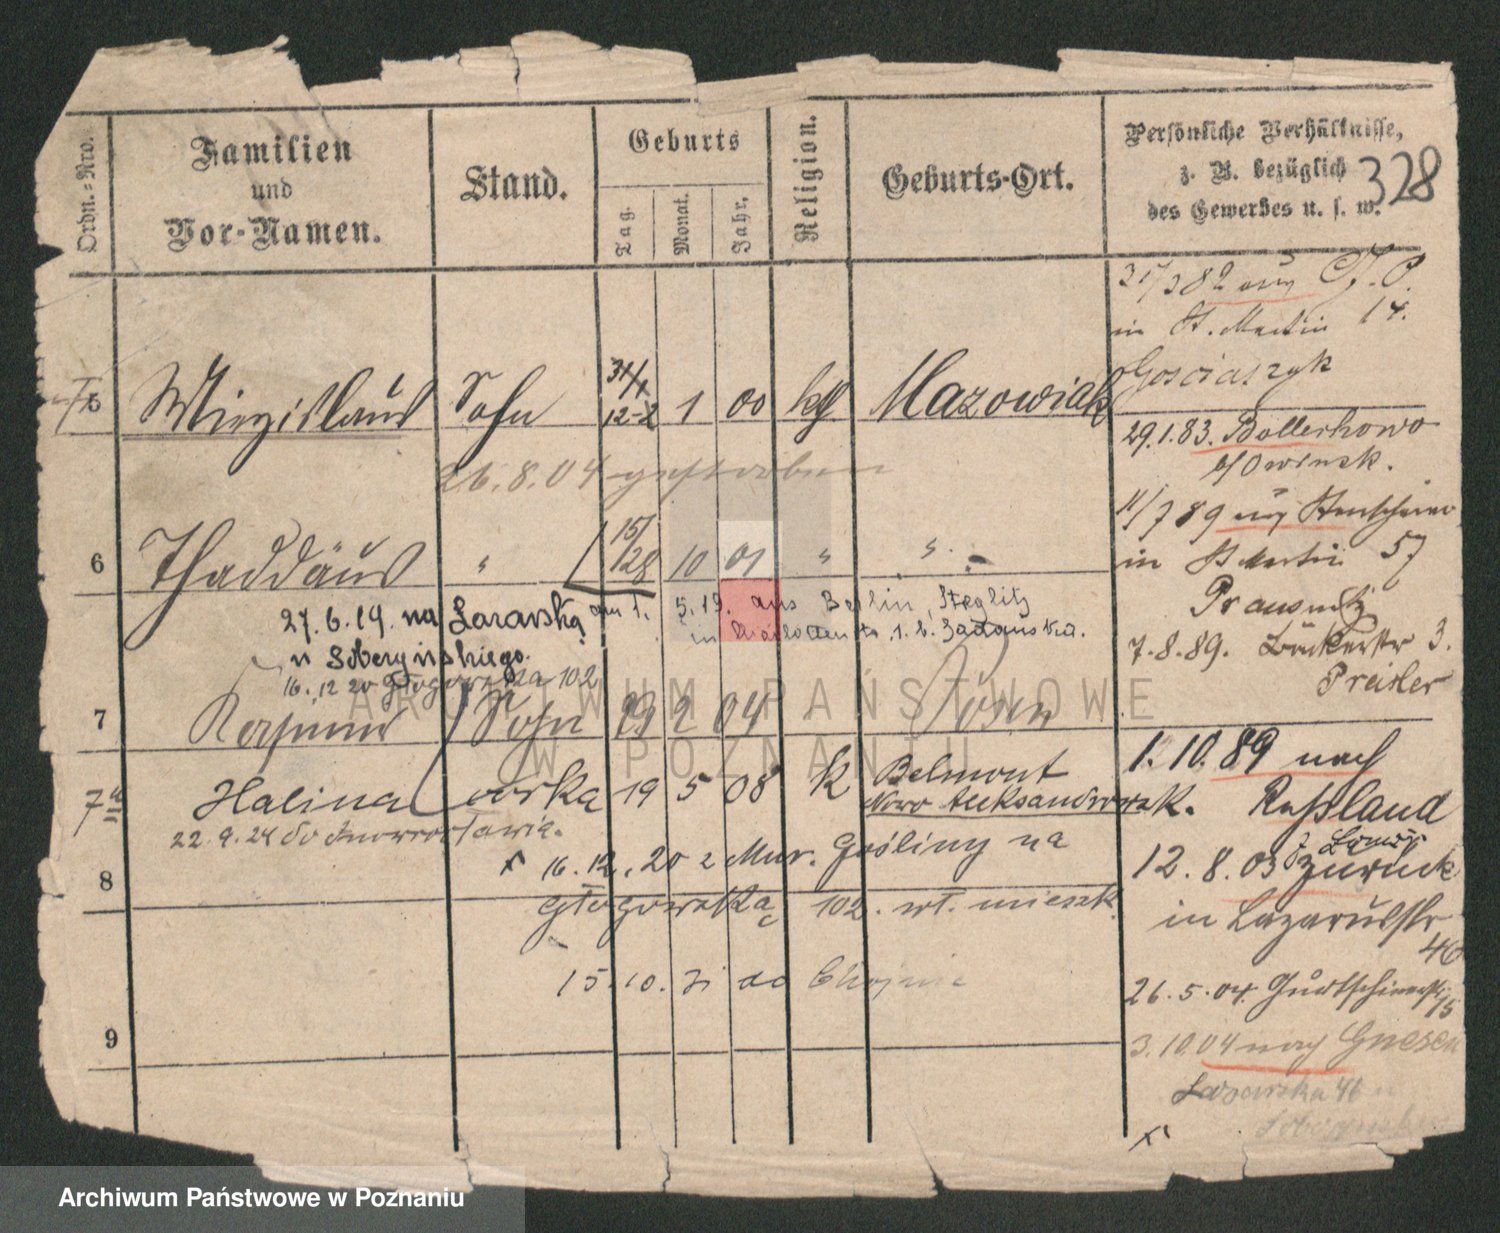 Ordn.=Nro.
Familien
und
Vor-Namen.
Stand.
Geburts
Tag.
Monat.
Jahr.
Religion.
Geburts-Ort.
Persönliche Verhältnisse,
z. B. bezüglich
des Gewerbes u. s. w.
328
5 Sohn 31/1 12-2 1 00 Mazowiak
26.8.04 gestorben
6 Thaddäus " 15/28 10 01 " "
27.6.19. na Lazarską am 1. 5.19. aus Berlin, Steglitz
u Soberyńskiego.
16.12 20 Głogowska 102
7 Sohn 2 04 Posen
7a Halina córka 19 5 08 k Belmont
Nowo Aleksandrowsk.
22.9.24 do Inowrocławia.
x 16.12.20 z Mur. Gośliny na
8
Głogowska 102. wł. mieszk.
15.10. do
9
31/3 82
in St. Martin 14.
Gosciaszyk
29.1.83. Bollechowo
b/Owinsk.
11/7 89
in St Martin 57
Prausnitz
7.8.89. Bäckerstr 3.
Preisler
1.10.89 nach
Rußland
12.8.03 zurück
in Lazarusstr
46
26.5.04. Gurtschinerstr. 15
3.10.04 nach Gnesen
Lazarska 46
x
ARCHIWUM PAŃSTWOWE
W POZNANIU
Archiwum Państwowe w Poznaniu